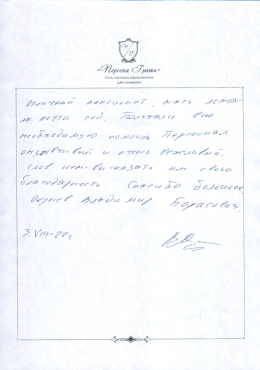 «Персона Грата»
Отличный пансионат, мать лежа-
ла почти год. Получали всю
необходимую помощь Персонал
отзывчивый и очень вежливый.
Слов нет высказать им свою
благодарность. Спасибо большое
Владимир Борисович.
3 VIII-20г